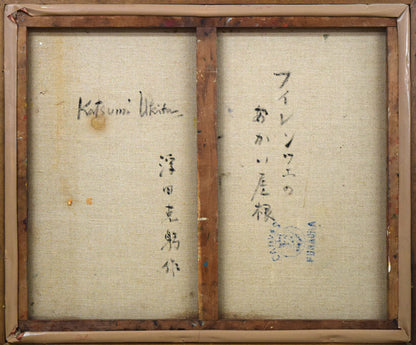 フィレンツェの
あかい屋根
Katsumi Ukita
浮田克躬作
FUNAOKA